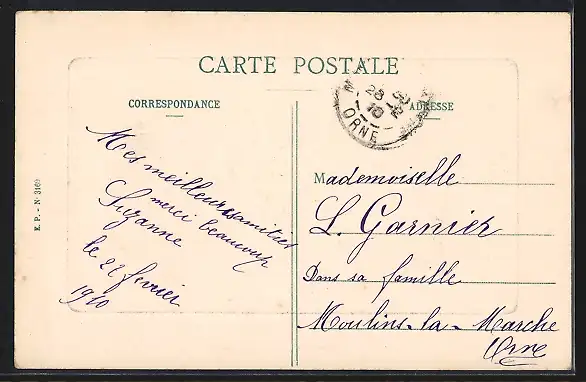 CARTE POSTALE
CORRESPONDANCE
ADRESSE
E. P. - N· 3169
Mes meilleures amitiés
merci beaucoup
Suzanne
le 22 fevrier
1910
Mademoiselle
L. Garnier
Dans sa famille
Moulins-la-Marche
Orne
28
10
ORNE